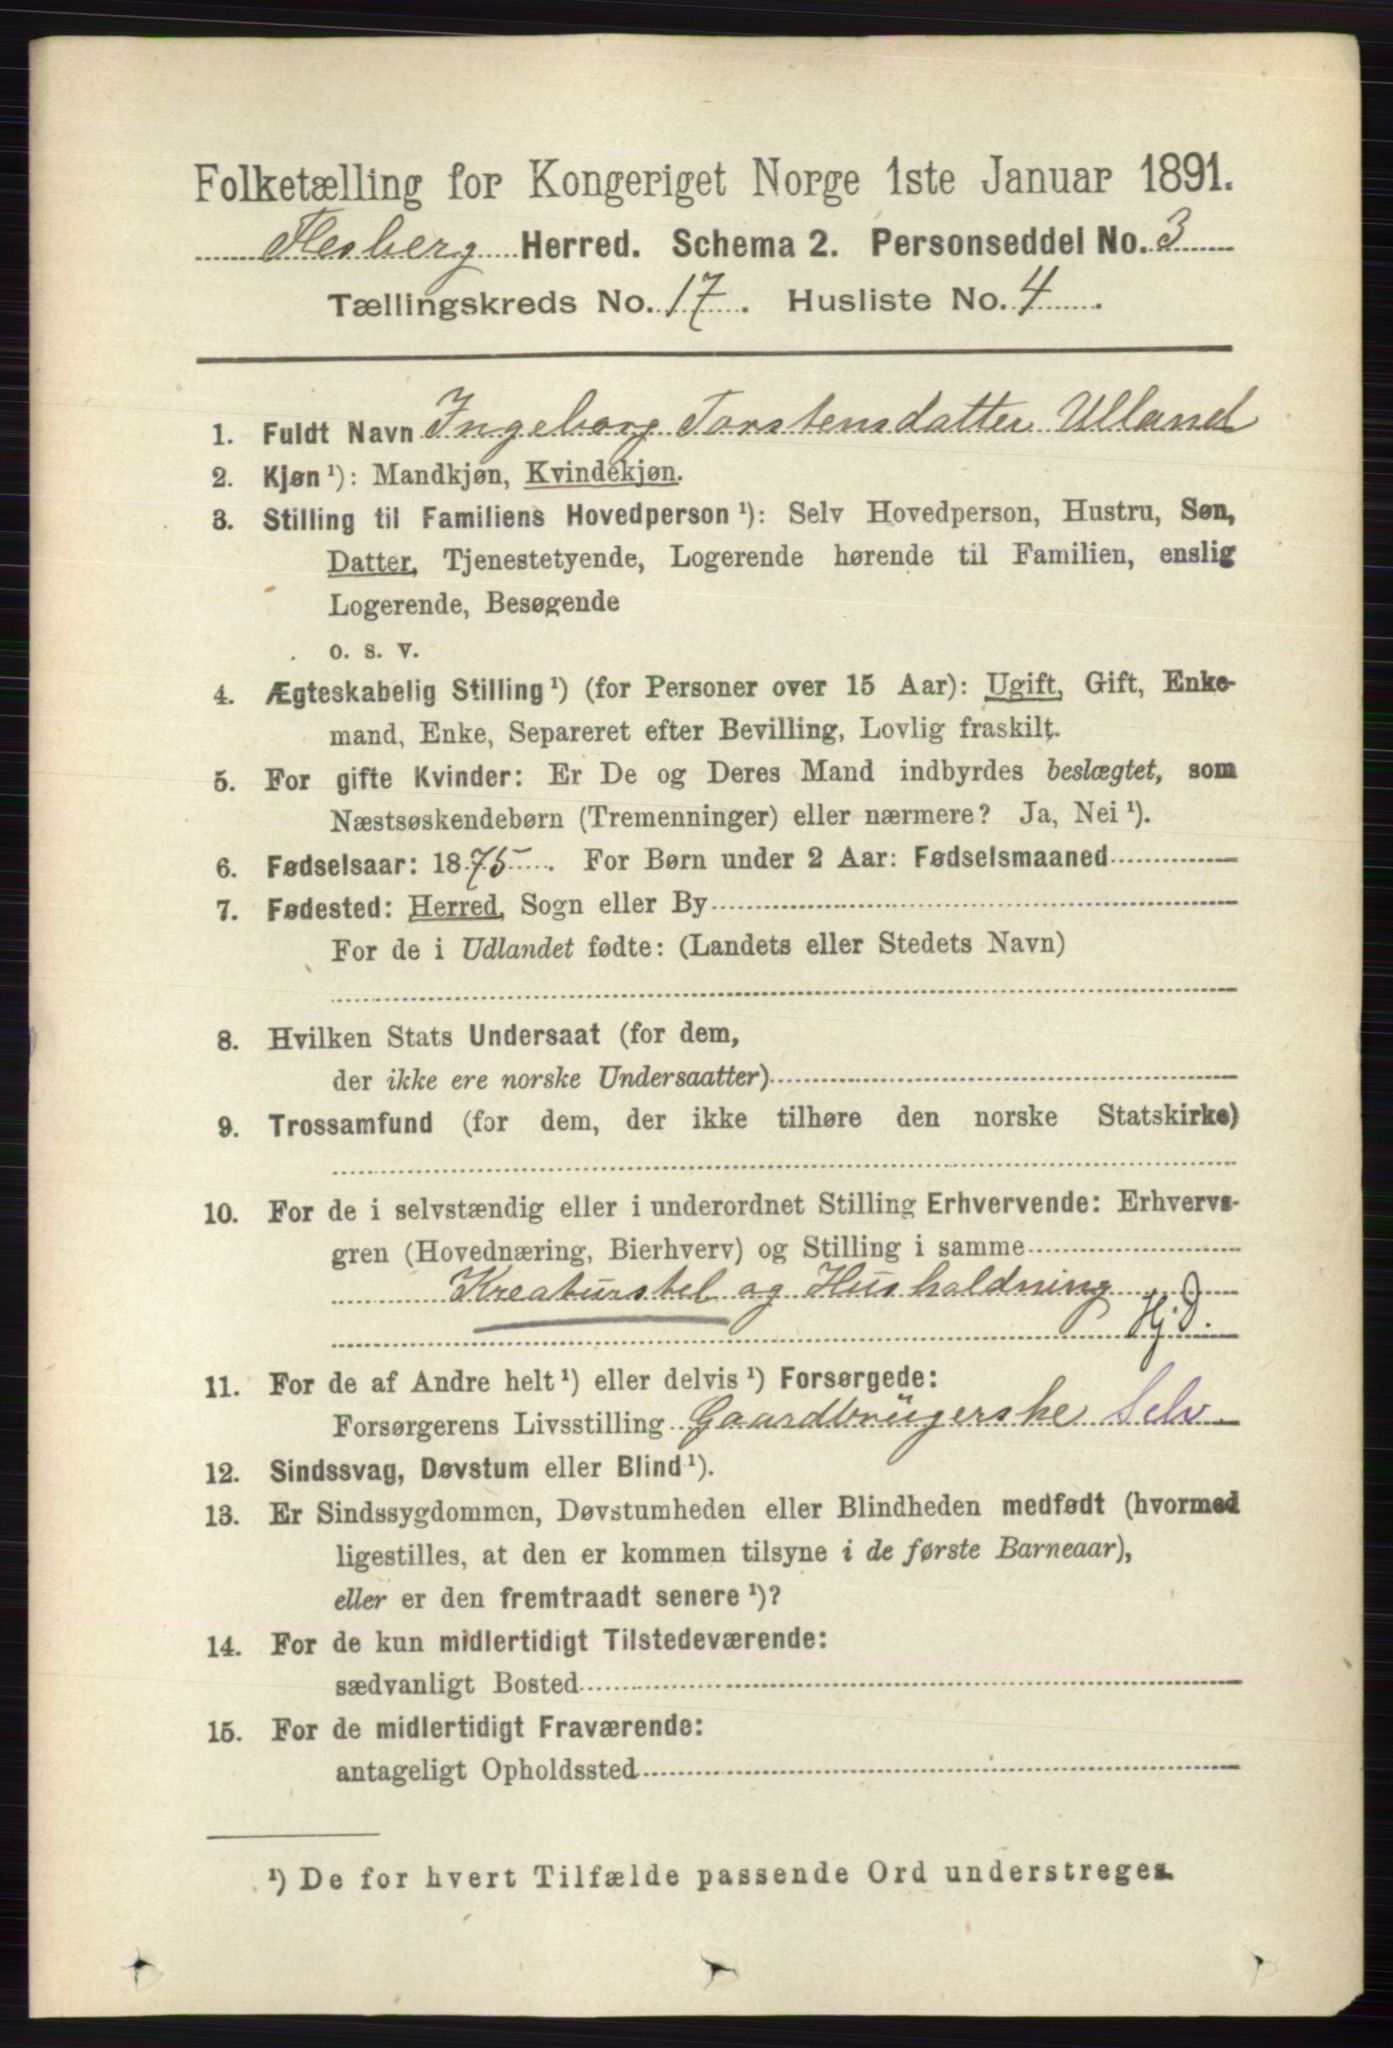 Folketælling for Kongeriget Norge 1ste Januar 1891.
Flesberg Herred. Schema 2. Personseddel No. 3
Tællingskreds No. 17. Husliste No. 4.
1. Fuldt Navn Ingeborg Torstensdatter Ulland
2. Kjøn ¹): Mandkjøn, Kvindekjøn.
3. Stilling til Familiens Hovedperson ¹): Selv Hovedperson, Hustru, Søn,
Datter, Tjenestetyende, Logerende hørende til Familien, enslig
Logerende, Besøgende
o. s. v.
4. Ægteskabelig Stilling ¹) (for Personer over 15 Aar): Ugift, Gift, Enke-
mand, Enke, Separeret efter Bevilling, Lovlig fraskilt.
5. For gifte Kvinder: Er De og Deres Mand indbyrdes beslægtet, som
Næstsøskendebørn (Tremenninger) eller nærmere? Ja, Nei ¹).
6. Fødselsaar: 1875. For Børn under 2 Aar: Fødselsmaaned
7. Fødested: Herred, Sogn eller By
For de i Udlandet fødte: (Landets eller Stedets Navn)
8. Hvilken Stats Undersaat (for dem,
der ikke ere norske Undersaatter)
9. Trossamfund (for dem, der ikke tilhøre den norske Statskirke)
10. For de i selvstændig eller i underordnet Stilling Erhvervende: Erhvervs-
gren (Hovednæring, Bierhverv) og Stilling i samme
Kreaturstel og Husholdning
Hj. D.
11. For de af Andre helt ¹) eller delvis ¹) Forsørgede:
Forsørgerens Livsstilling Gaardbrügerske Selv
12. Sindssvag, Døvstum eller Blind ¹).
13. Er Sindssygdommen, Døvstumheden eller Blindheden medfødt (hvormed
ligestilles, at den er kommen tilsyne i de første Barneaar),
eller er den fremtraadt senere ¹)?
14. For de kun midlertidigt Tilstedeværende:
sædvanligt Bosted
15. For de midlertidigt Fraværende:
antageligt Opholdssted
¹) De for hvert Tilfælde passende Ord understreges.